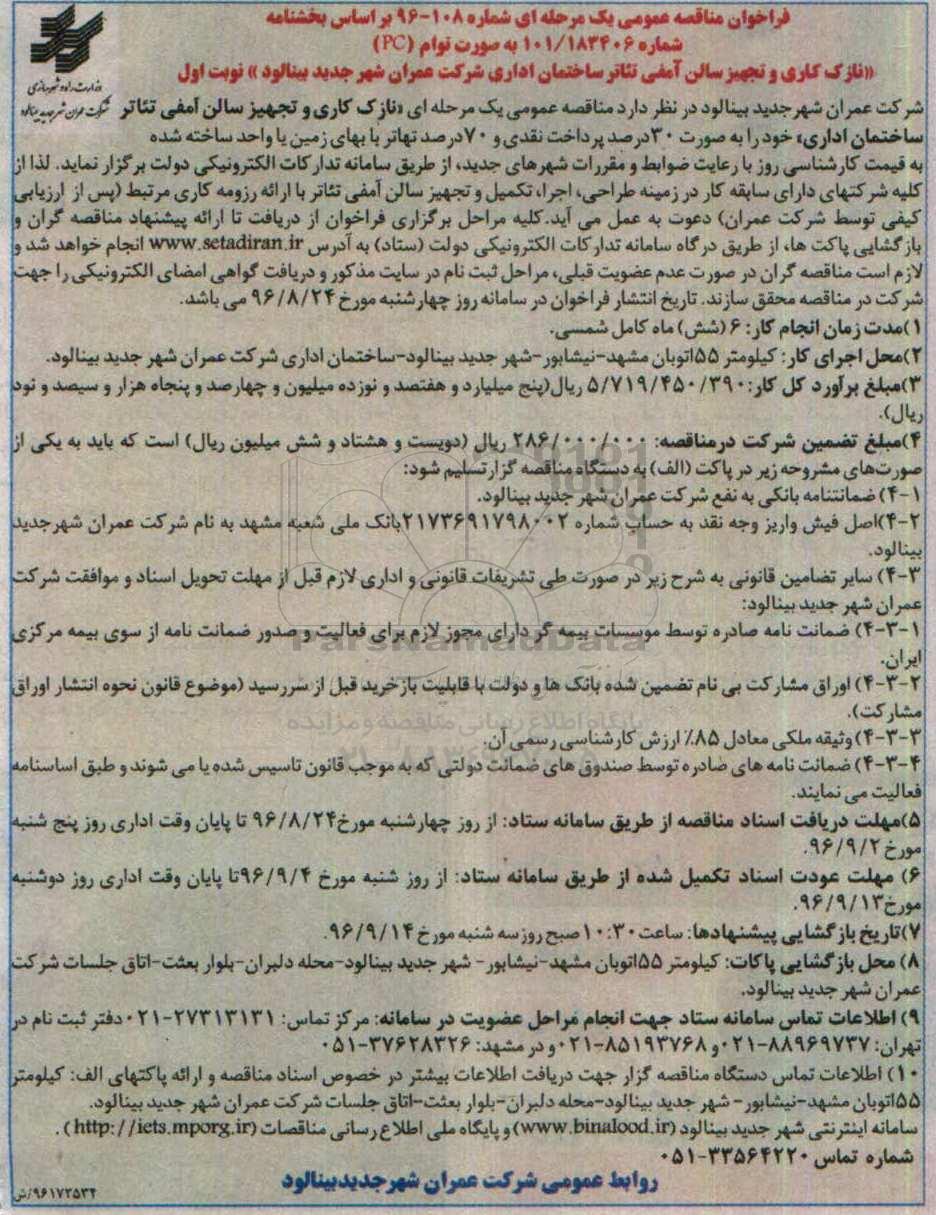 فراخوان مناقصه عمومی یک مرحله ای شماره ۱۰۸-۹۶ بر اساس بخشنامه
شماره ۱۰۱/۱۸۳۴۰۶ به صورت توام (PC)
«نازک کاری و تجهیز سالن آمفی تئاتر ساختمان اداری شرکت عمران شهر جدید بینالود» نوبت اول
وزارت راه و شهرسازی
شرکت عمران شهر جدید بینالود
شرکت عمران شهر جدید بینالود در نظر دارد مناقصه عمومی یک مرحله ای «نازک کاری و تجهیز سالن آمفی تئاتر
ساختمان اداری» خود را به صورت ۳۰درصد پرداخت نقدی و ۷۰درصد تهاتر با بهای زمین یا واحد ساخته شده
به قیمت کارشناسی روز با رعایت ضوابط و مقررات شهرهای جدید، از طریق سامانه تدارکات الکترونیکی دولت برگزار نماید. لذا از
کلیه شرکتهای دارای سابقه کار در زمینه طراحی، اجرا، تکمیل و تجهیز سالن آمفی تئاتر با ارائه رزومه کاری مرتبط (پس از ارزیابی
کیفی توسط شرکت عمران) دعوت به عمل می آید.کلیه مراحل برگزاری فراخوان از دریافت تا ارائه پیشنهاد مناقصه گران و
بازگشایی پاکت ها، از طریق درگاه سامانه تدارکات الکترونیکی دولت (ستاد) به آدرس www.setadiran.ir انجام خواهد شد و
لازم است مناقصه گران در صورت عدم عضویت قبلی، مراحل ثبت نام در سایت مذکور و دریافت گواهی امضای الکترونیکی را جهت
شرکت در مناقصه محقق سازند. تاریخ انتشار فراخوان در سامانه روز چهارشنبه مورخ ۹۶/۸/۲۴ می باشد.
۱)مدت زمان انجام کار: ۶ (شش) ماه کامل شمسی.
۲)محل اجرای کار: کیلومتر ۵۵اتوبان مشهد-نیشابور-شهر جدید بینالود-ساختمان اداری شرکت عمران شهر جدید بینالود.
۳)مبلغ برآورد کل کار:۵/۷۱۹/۴۵۰/۳۹۰ ریال(پنج میلیارد و هفتصد و نوزده میلیون و چهارصد و پنجاه هزار و سیصد و نود
ریال).
۴)مبلغ تضمین شرکت درمناقصه: ۲۸۶/۰۰۰/۰۰۰ ریال (دویست و هشتاد و شش میلیون ریال) است که باید به یکی از
صورت‌های مشروحه زیر در پاکت (الف) به دستگاه مناقصه گزار تسلیم شود:
۴-۱) ضمانتنامه بانکی به نفع شرکت عمران شهر جدید بینالود.
۴-۲)اصل فیش واریز وجه نقد به حساب شماره ۲۱۷۳۶۹۱۷۹۸۰۰۲بانک ملی شعبه مشهد به نام شرکت عمران شهرجدید
بینالود.
۴-۳) سایر تضامین قانونی به شرح زیر در صورت طی تشریفات قانونی و اداری لازم قبل از مهلت تحویل اسناد و موافقت شرکت
عمران شهر جدید بینالود:
۴-۳-۱) ضمانت نامه صادره توسط موسسات بیمه گر دارای مجوز لازم برای فعالیت و صدور ضمانت نامه از سوی بیمه مرکزی
ایران.
۴-۳-۲) اوراق مشارکت بی نام تضمین شده بانک ها و دولت با قابلیت بازخرید قبل از سررسید (موضوع قانون نحوه انتشار اوراق
مشارکت).
۴-۳-۳) وثیقه ملکی معادل ۸۵٪ ارزش کارشناسی رسمی آن.
۴-۳-۴) ضمانت نامه های صادره توسط صندوق های ضمانت دولتی که به موجب قانون تاسیس شده یا می شوند و طبق اساسنامه
فعالیت می نمایند.
۵)مهلت دریافت اسناد مناقصه از طریق سامانه ستاد: از روز چهارشنبه مورخ۹۶/۸/۲۴ تا پایان وقت اداری روز پنج شنبه
مورخ ۹۶/۹/۲.
۶) مهلت عودت اسناد تکمیل شده از طریق سامانه ستاد: از روز شنبه مورخ ۹۶/۹/۴تا پایان وقت اداری روز دوشنبه
مورخ۹۶/۹/۱۳.
۷)تاریخ بازگشایی پیشنهادها: ساعت ۱۰:۳۰صبح روز سه شنبه مورخ ۹۶/۹/۱۴.
۸) محل بازگشایی پاکات: کیلومتر ۵۵اتوبان مشهد-نیشابور- شهر جدید بینالود-محله دلبران-بلوار بعثت-اتاق جلسات شرکت
عمران شهر جدید بینالود.
۹) اطلاعات تماس سامانه ستاد جهت انجام مراحل عضویت در سامانه: مرکز تماس: ۲۷۳۱۳۱۳۱-۰۲۱دفتر ثبت نام در
تهران: ۸۸۹۶۹۷۳۷-۰۲۱ و ۸۵۱۹۳۷۶۸-۰۲۱ و در مشهد: ۳۷۶۲۸۳۲۶-۰۵۱
۱۰) اطلاعات تماس دستگاه مناقصه گزار جهت دریافت اطلاعات بیشتر در خصوص اسناد مناقصه و ارائه پاکتهای الف: کیلومتر
۵۵اتوبان مشهد-نیشابور- شهر جدید بینالود-محله دلبران-بلوار بعثت-اتاق جلسات شرکت عمران شهر جدید بینالود.
سامانه اینترنتی شهر جدید بینالود (www.binalood.ir) و پایگاه ملی اطلاع رسانی مناقصات (http://iets.mporg.ir) .
شماره تماس ۳۳۵۶۴۲۲۰-۰۵۱
روابط عمومی شرکت عمران شهر جدید بینالود
۹۶۱۷۲۵۳۴/ش
ParsNamadData
پایگاه اطلاع رسانی مناقصه و مزایده